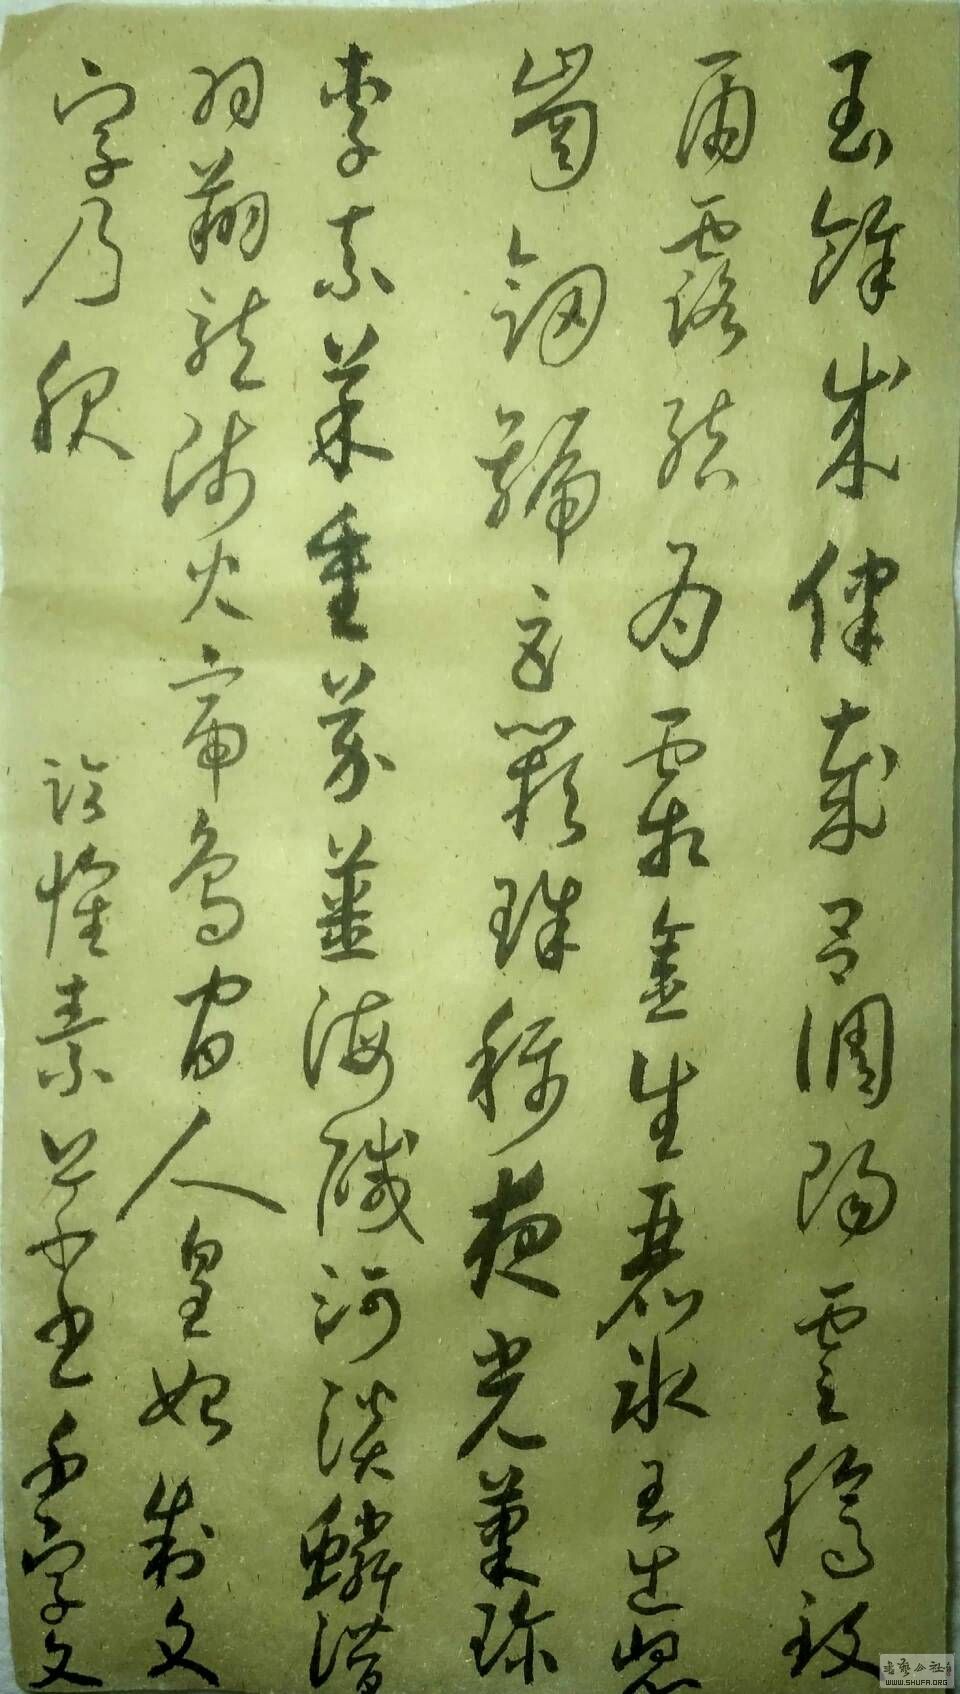 閏餘成律歲呂調陽雲騰致
雨露結為霜金生麗水玉出崐
崗劍號巨闕珠稱夜光菓珍
李柰菜重芥薑海鹹河淡鱗潛
羽翔龍師火帝鳥官人皇始制文
字乃服
臨懷素草書千字文
WWW.SHUFA.ORG